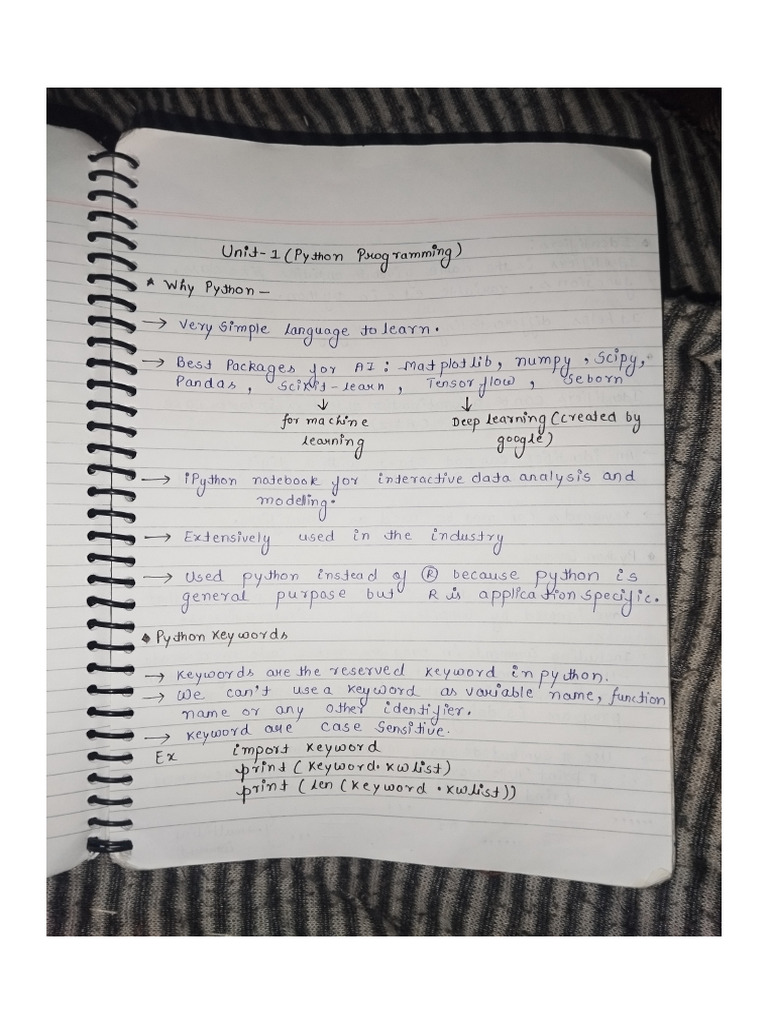 Unit-1 (Python Programming)
* Why Python -
→ Very Simple language to learn.
→ Best Packages for AI: Matplotlib, numpy, Scipy,
Pandas, Scikit-learn, Tensorflow, Seborn
↓ ↓
for machine Deep learning (created by
learning google)
→ iPython notebook for interactive data analysis and
modeling.
→ Extensively used in the industry
→ Used python instead of Ⓡ because python is
general purpose but R is application specific.
• Python Keywords
→ Keywords are the reserved keyword in python.
→ We can't use a keyword as variable name, function
name or any other identifier.
→ Keyword are case sensitive.
Ex import keyword
print (keyword.kwlist)
print (len (keyword.kwlist))